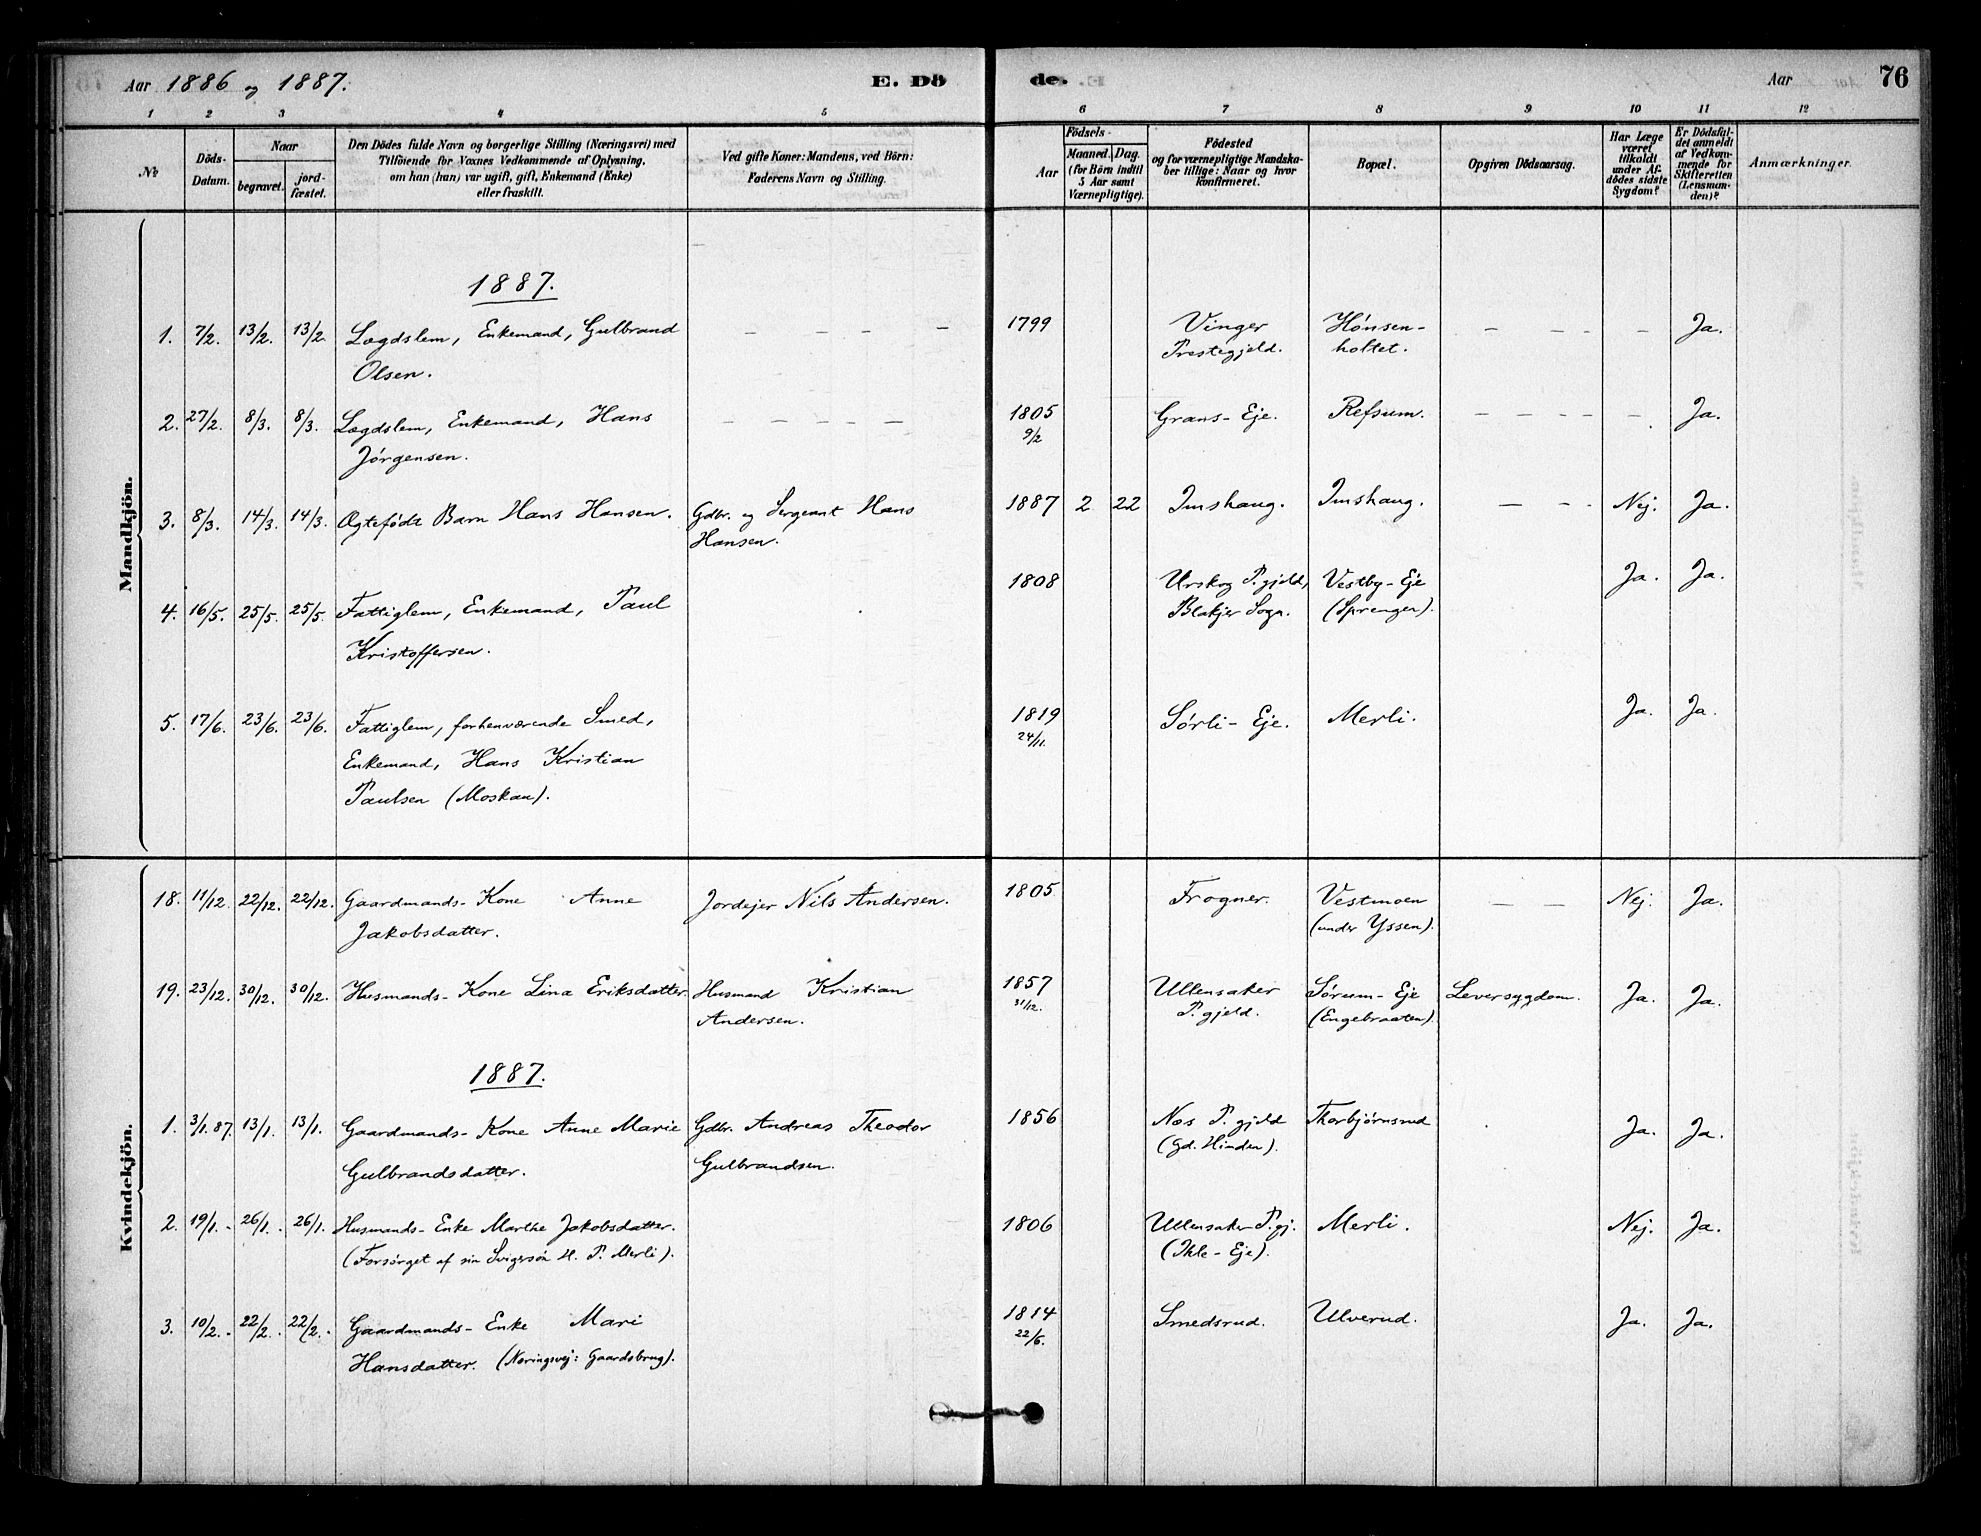 Aar 1886 og 1887.
E. Dö
de.
Aar
76
1 2 3 4 5 6 7 8 9 10 11 12
№
Döds-
Datum.
Naar
begravet.
jord-
fæstet.
Den Dödes fulde Navn og borgerlige Stilling (Næringsvei) med
Tilföiende for Voxnes Vedkommende af Oplysning,
om han (hun) var ugift, gift, Enkemand (Enke)
eller fraskilt.
Ved gifte Koner: Mandens, ved Börn:
Faderens Navn og Stilling.
Födsels-
Aar
Maaned. Dag.
(for Börn indtil
5 Aar samt
Værnepligtige).
Födested
og for værnepligtige Mandska-
ber tillige: Naar og hvor
konfirmeret.
Bopæl.
Opgiven Dödsaarsag.
Har Læge
været
tilkaldt
under Af-
dödes sidste
Sygdom?
Er Dödsfal-
det anmeldt
af Vedkom-
mende for
Skifteretten
(Lensman-
den)?
Anmærkninger.
Mandkjön.
1887.
1. 7/2. 13/2. 13/2. Lægdslem, Enkemand, Gulbrand — — — — 1799 Vinger Hönsen- — — — — Ja.
Olsen. Prestegjeld. holtet.
2. 27/2. 8/3. 8/3. Lægdslem, Enkemand, Hans — — — — — 1805 Grans-Eje. Refsum. — — — — — Ja.
Jörgensen. 9/2
3. 8/3. 14/3. 14/3. Ægtefödt Barn Hans Hansen. Gdbr. og Sergeant Hans 1887 2 22 Imshaug. Imshaug. — — - Nej. Ja.
Hansen.
4. 16/5. 25/5. 25/5. Fattiglem, Enkemand, Paul 1808 Urskog P.gjeld, Vestby-Eje Ja. Ja.
Kristoffersen. Blakjer Sogn. (Sprenger).
5. 17/6. 23/6. 23/6. Fattiglem, forhenværende Smed, 1819 Sörli-Eje. Merli. Ja. Ja.
Enkemand, Hans Kristian 24/11.
Paulsen (Moskau).
Kvindekjön.
18. 11/12. 22/12. 22/12. Gaardmands-Kone Anne Jordejer Nils Andersen. 1805 Frogner. Vestmoen — — Nej. Ja.
Jakobsdatter. (under Yssen).
19. 23/12. 30/12. 30/12. Husmands-Kone Lina Eriksdatter Husmand Kristian 1857 Ullensaker Sörum-Eje Leversygdom. Ja. Ja.
Andersen. 31/12. P.gjeld. (Engebraaten).
1887.
1. 3/1.87. 13/1. 13/1. Gaardmands-Kone Anne Marie Gdbr. Andreas Theodor 1856 Nes P.gjeld Thorbjörnsrud Ja. Ja.
Gulbrandsdatter. Gulbrandsen. (Gd. Hinden).
2. 19/1. 26/1. 26/1. Husmands-Enke Marthe Jakobsdatter. 1806 Ullensaker P.gj. Merli. Nej. Ja.
(Forsörget af sin Svigersön H. P. Merli). (Ihle-Eje).
3. 10/2. 22/2. 22/2. Gaardmands-Enke Mari 1814 Smedsrud. Ulverud. Ja. Ja.
Hansdatter. (Næringsvej: Gaardsbrug). 22/6.